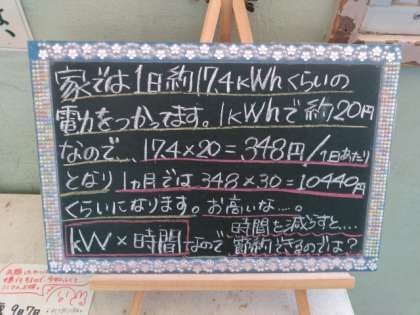 家では1日約17.4kWhくらいの
電力をつかってます。1kWhで約20円
なので… 17.4×20=348円/1日あたり
となり 1ヵ月では348×30=10440円
くらいになります。お高いな…。
kW×時間 なので 時間を減らすと…
節約できるのでは?
9月7日